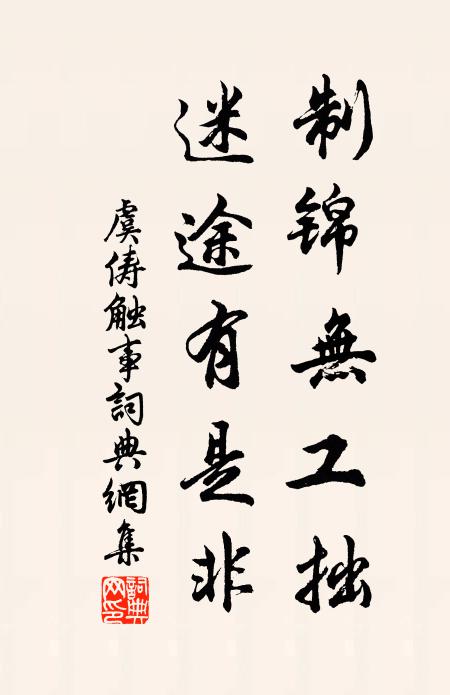 制锦無工拙
迷途有是非
虞俦触事詞典網集
詞典網印